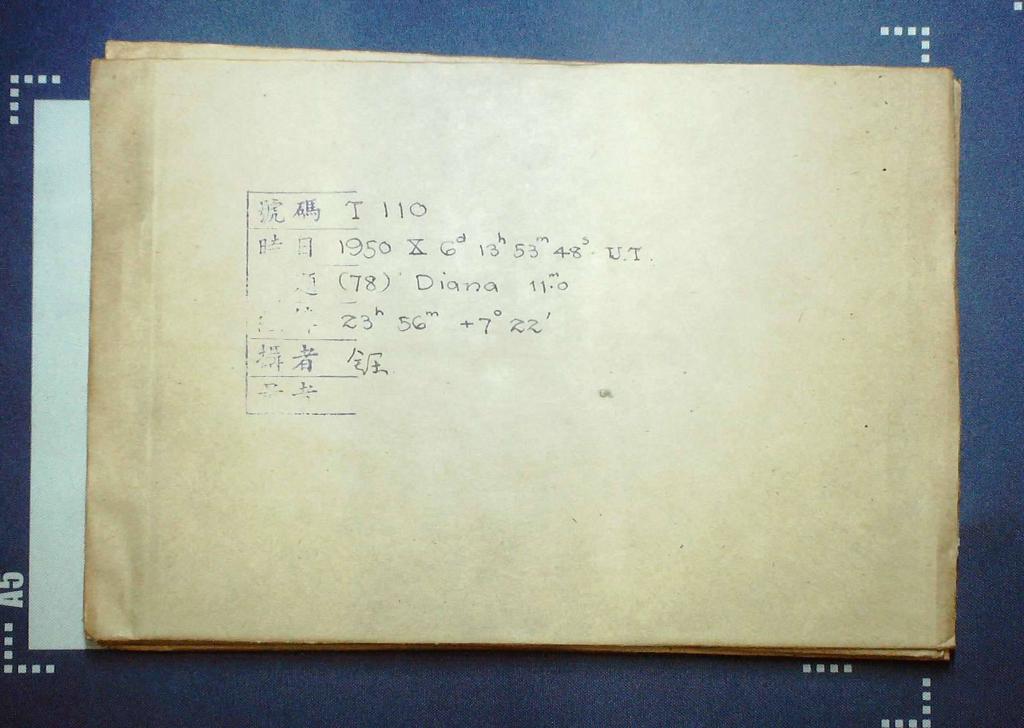 號碼 I 110
時日 1950 X 6ᵈ 13ʰ 53ᵐ 48ˢ U.T.
題 (78) Diana 11ᵐ.0
23ʰ 56ᵐ +7° 22'
攝者 鈺
A5